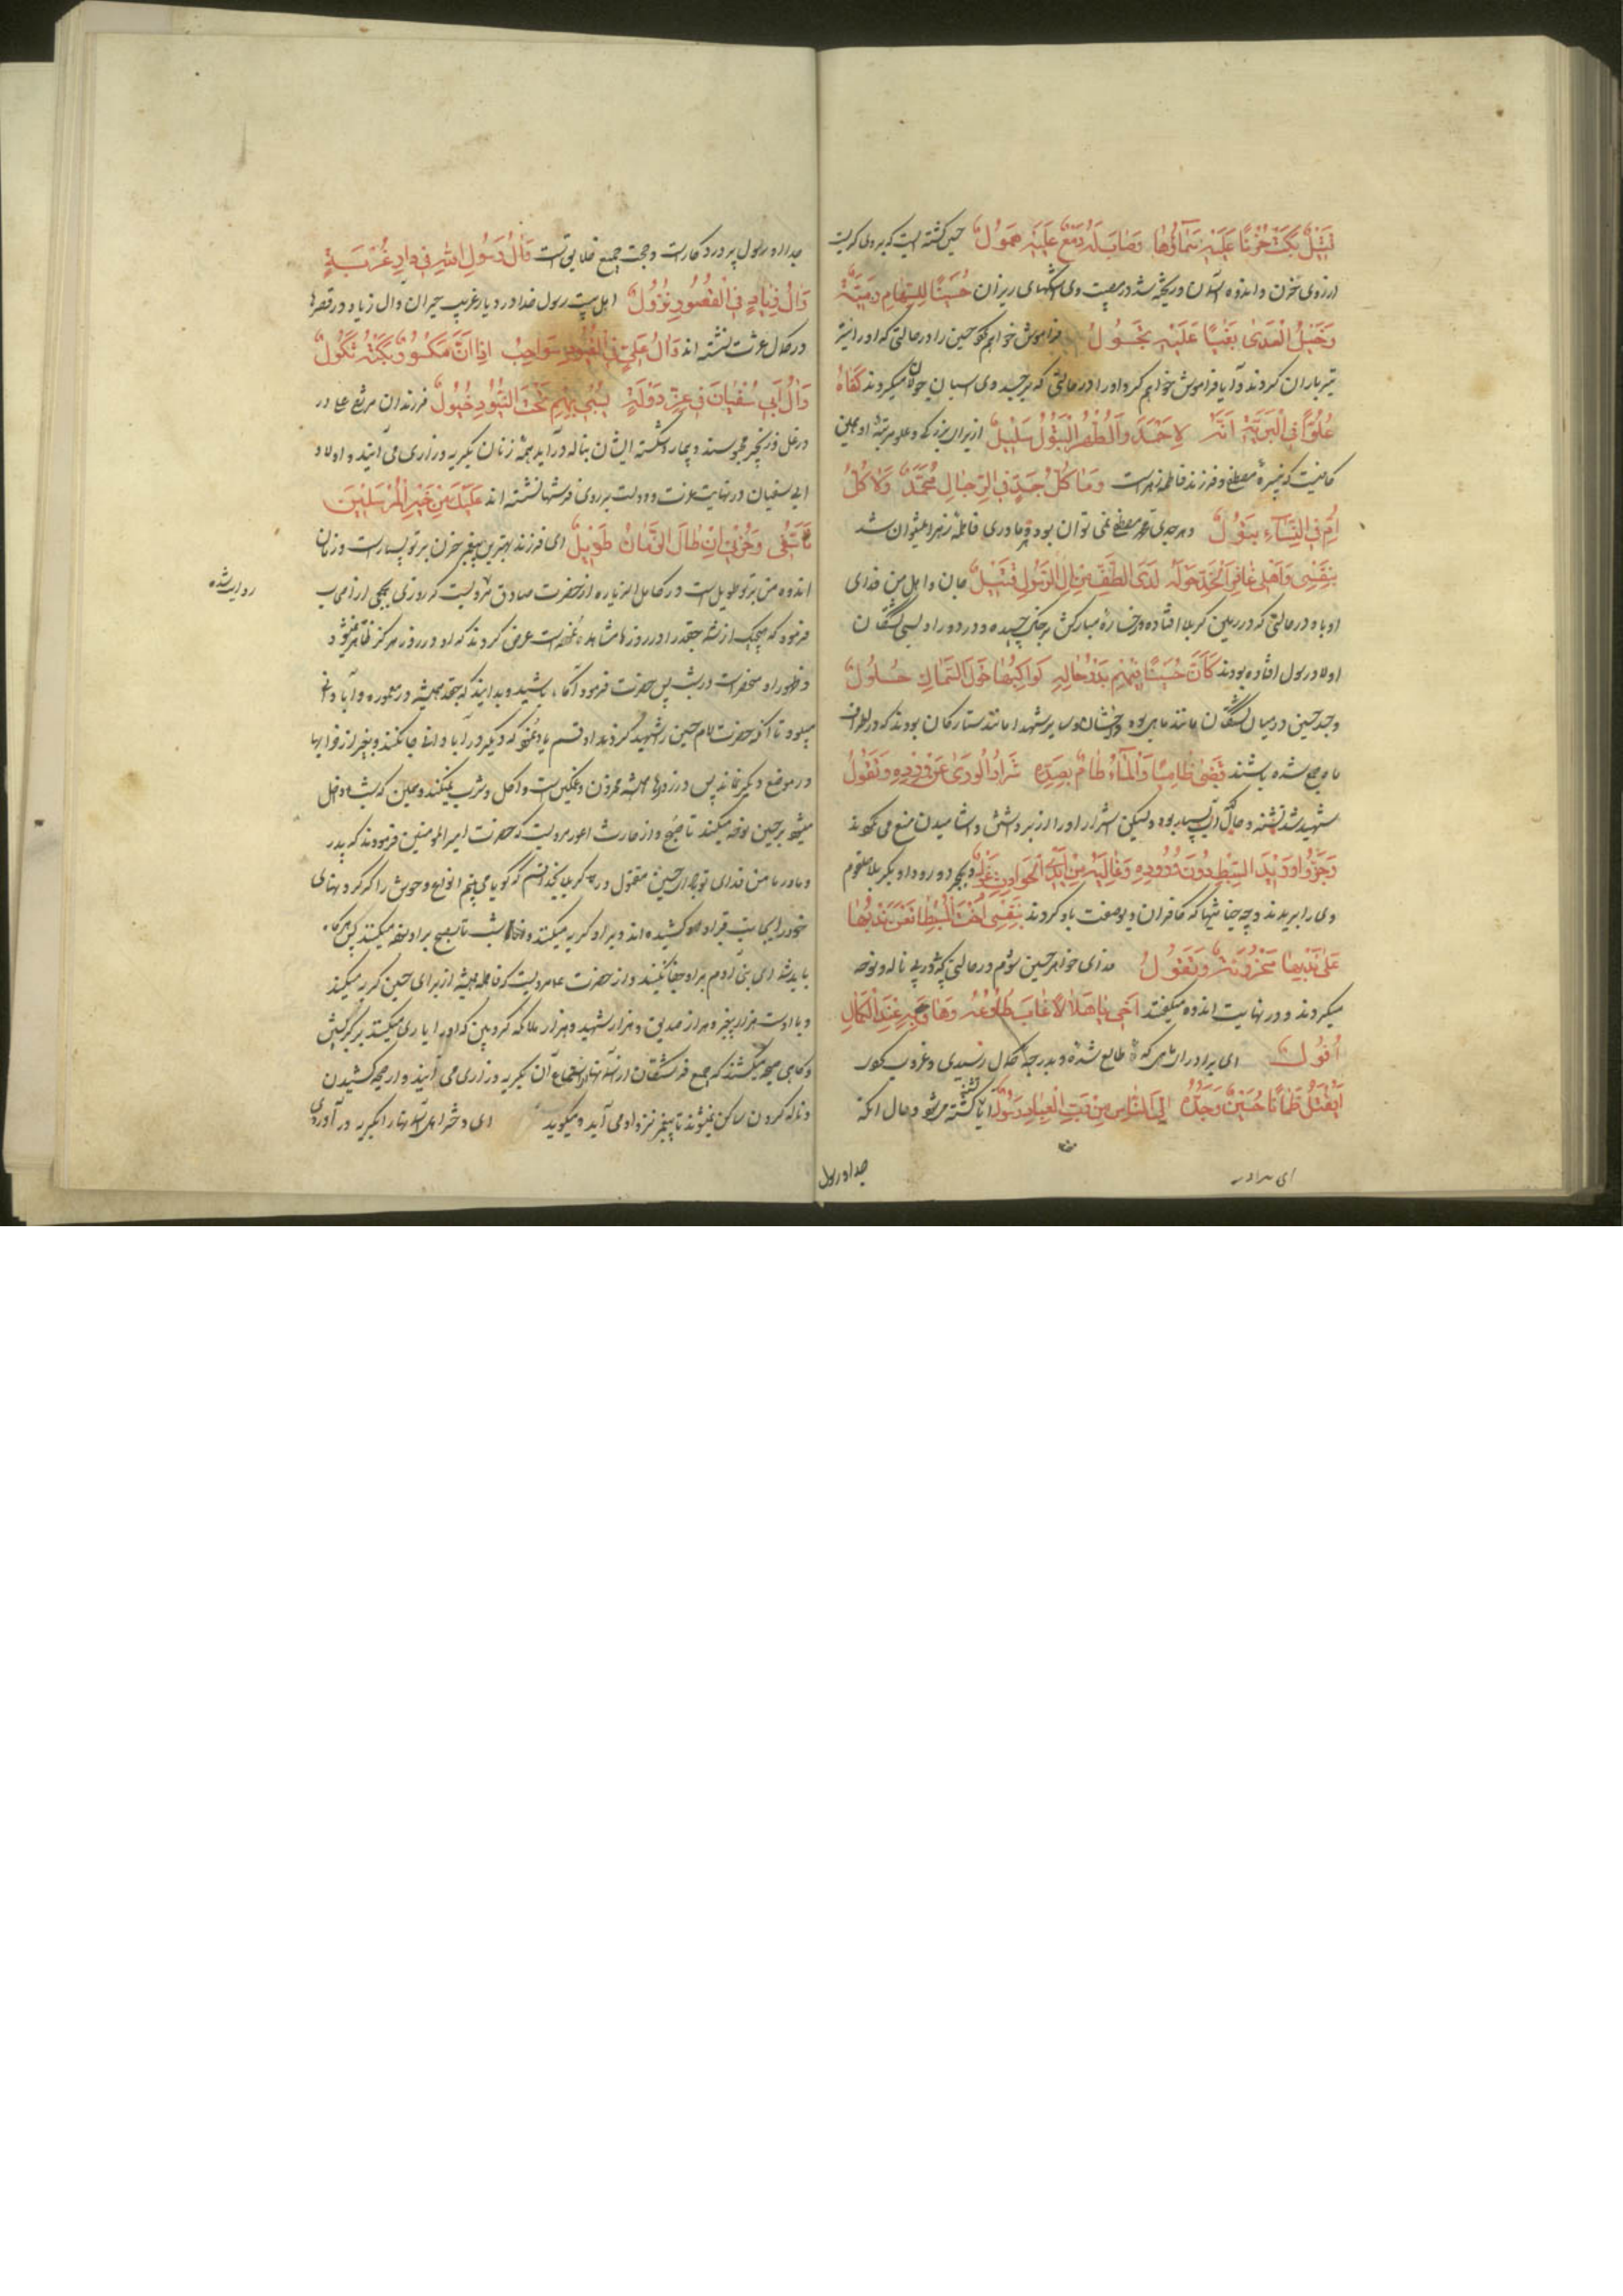 قَتِيلٌ بَكَتْ حُزْنًا عَلَيْهِ سَمَاؤُهَا وَصَابَ لَهُ دَمْعٌ عَلَيْهِ هَمُولٌ حسین کشته ایست که بر وی کریست
از روی حزن و اندوه آسمان و ریخته شد در مصیبت وی اشکهای ریزان حُسَيْنًا لِلسِّهَامِ رَمِيَّةً
وَخَيْلُ الْعِدَى بَغْيًا عَلَيْهِ تَجُولُ فراموش خواهم کرد حسین را در حالتی که او را نیز
تیر باران کردند و آیا فراموش خواهم کرد او را در حالتی که بر جسد وی اسبان جولان میکردند كَفَاهُ
عُلُوًّا فِي الْبَرِيَّةِ أَنَّهُ لِأَحْمَدَ وَالطُّهْرِ الْبَتُولِ سَلِيلٌ از برای بزرگی و علو مرتبهٔ او همین
کافیست که نبیرهٔ مصطفی و فرزند فاطمه زهراست وَمَا كُلُّ جَدٍّ فِي الرِّجَالِ مُحَمَّدٌ وَلَا كُلُّ
أُمٍّ فِي النِّسَاءِ بَتُولٌ و هر جدی محمد مصطفی نمی توان بود و هر مادری فاطمه زهرا نمیتوان شد
بِنَفْسِي وَأَهْلِي عَافِرَ الْخَدِّ حَوْلَهُ لَدَى الطَّفِّ مِنْ آلِ الرَّسُولِ قَتِيلٌ جان و اهل من فدای
او باد در حالتی که در زمین کربلا افتاده و رخسارهٔ مبارکش بر خاک چسبیده و در دور او بسی کشتگان
اولاد رسول افتاده بودند كَأَنَّ حُسَيْنًا فِيهِمْ بَدْرُ هَالَةٍ كَوَاكِبُهَا حَوْلَ السِّمَاكِ حُلُولٌ
و جسد حسین در میان کشتگان مانند ماهی بود درخشان و سایر شهدا مانند ستارکان بودند که در اطراف
ماه جمع شده باشند قَضَى ظَامِيًا وَالْمَاءُ طَامٍ تَصُدُّهُ شِرَارُ الْوَرَى عَنْ وِرْدِهِ وَنُغُولُ
شهید شد تشنه و حال آنکه آب بسیار بود ولیکن اشرار او را از برداشتن و آشامیدن منع می نمودند
وَحَزُّوا وَرِيدَ السِّبْطِ دُونَ وُرُودِهِ وَغَالَتْهُ مِنْ أَيْدِي الْحَوَادِثِ غُولٌ و بمجرد ورود او بکربلا حلقوم
وی را بریدند و چه جفاها که کافران دیو صفت باو کردند بِنَفْسِي أُخْتُ السِّبْطِ تُعْلِنُ نَدْبَهَا
عَلَى نَدْبِهَا مَحْزُونَةً وَتَقُولُ فدای خواهر حسین شوم در حالتی که نوحه و ناله
میکردند و در نهایت اندوه میگفتند أَخِي يَا هِلَالًا غَابَ طُلُوعُهُ وَهَا عِنْدَ الْكَمَالِ
أُفُولٌ ای برادر ای ماهی که طالع شده و بدرجهٔ کمال رسیدی و غروب کرد
أَيُقْتَلُ ظَمْآنًا حُسَيْنٌ وَجَدُّهُ إِلَى النَّاسِ مِنْ رَبِّ الْعِبَادِ رَسُولٌ آیا تشنه کشته میشود و حال آنکه
ای برادر
جد او رسول
جد او رسول پروردکار است و حجت جمیع خلایق است وَآلُ رَسُولِ اللهِ فِي دَارِ غُرْبَةٍ
وَآلُ زِيَادٍ فِي الْقُصُورِ نُزُولٌ اهل بیت رسول خدا در دیار غریب حیران و آل زیاد در قصرها
در کمال عشرت نشسته اند وَآلُ عَلِيٍّ فِي الْقُيُودِ شَوَاحِبُ إِذَا أَنَّ مَأْسُورٌ بَكَتْهُ ثَكُولٌ
وَآلُ أَبِي سُفْيَانَ فِي عِزِّ دَوْلَةٍ تَسِيرُ بِهِمْ تَحْتَ الْبُنُودِ خُيُولٌ فرزندان مرتضی علی در
در غل و زنجیر محبوسند و بیمار و شکسته ایشان بناله درآید همه زنان بگریه و زاری می آیند و اولاد
ابی سفیان در نهایت عزت و دولت بر روی فرشها نشسته اند عَلَيْكَ ابْنَ خَيْرِ الْمُرْسَلِينَ
تَأَسُّفِي وَحُزْنِي إِنْ طَالَ الزَّمَانُ طَوِيلٌ ای فرزند بهترین پیغمبر حزن بر تو بسیار است و زمان
اندوه من بر تو طویل است در کامل الزیاره از حضرت صادق مرویست که روزی
روایت شده
فرمود که هیچیک از شما جغد را در روزها مشاهده نموده است عرض کردند که او در روز هرگز ظاهر نمیشود
و ظهور او منحصر است در شب پس حضرت فرمود آگاه باشید و بدانید که جغد همیشه در معموره و آبادی
میبود تا آنکه حضرت امام حسین را شهید کردند او قسم یاد نمود که دیگر در آبادانی جا نکند و بغیر از خرابها
در موضع دیگر نماند پس در روزها همیشه محزون و غمگین است و اکل و شرب نمیکند و همین که شب داخل
میشود بر حسین نوحه میکند تا صبح و از حارث اعور مرویست که حضرت امیر المومنین فرمودند که پدر
و مادر من فدای تو باد ای حسین مقتول در کربلا بخدا قسم که گویا می بینم انواع وحوش را که گردنهای
خود را بجانب قبر او کشیده اند و بر او گریه میکنند و شب تا بصبح بر او نوحه میکنند پس هرگاه
باید شما ای بنی آدم بر او جفا نکنید و از حضرت مرویست که فاطمه همیشه از برای حسین گریه میکند
و با اوست هزار پیغمبر و هزار صدیق و هزار شهید و هزار ملائکه کروبین که او را یاری میکنند بر گریستن
و گاهی صیحه میکشند که جمیع فرشتگان آسمانها از استماع آن بگریه و زاری می آیند و از صیحه کشیدن
و ناله کردن ساکن نمیشوند تا پیغمبر نزد او می آید و میگوید ای دختر اهل آسمانها را بگریه در آوردی